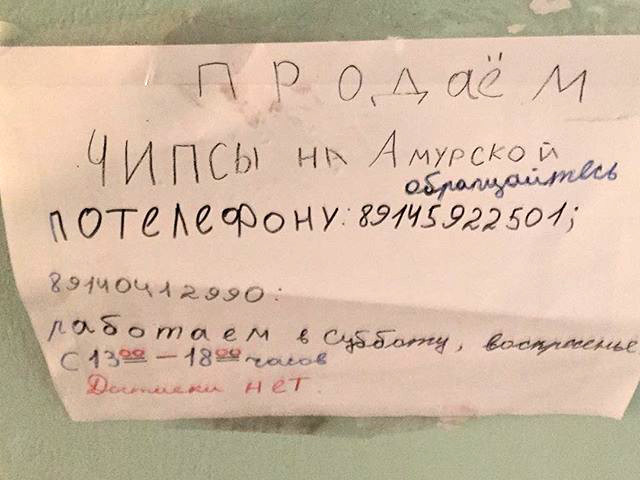 ПРОДАЁМ
ЧИПСЫ НА АМУРСКОЙ
обращайтесь
ПОТЕЛЕФОНУ: 89145922501;
89140412990:
работаем в субботу, воскрженье
С 13⁰⁰ – 18⁰⁰ часов
Доставки нет.